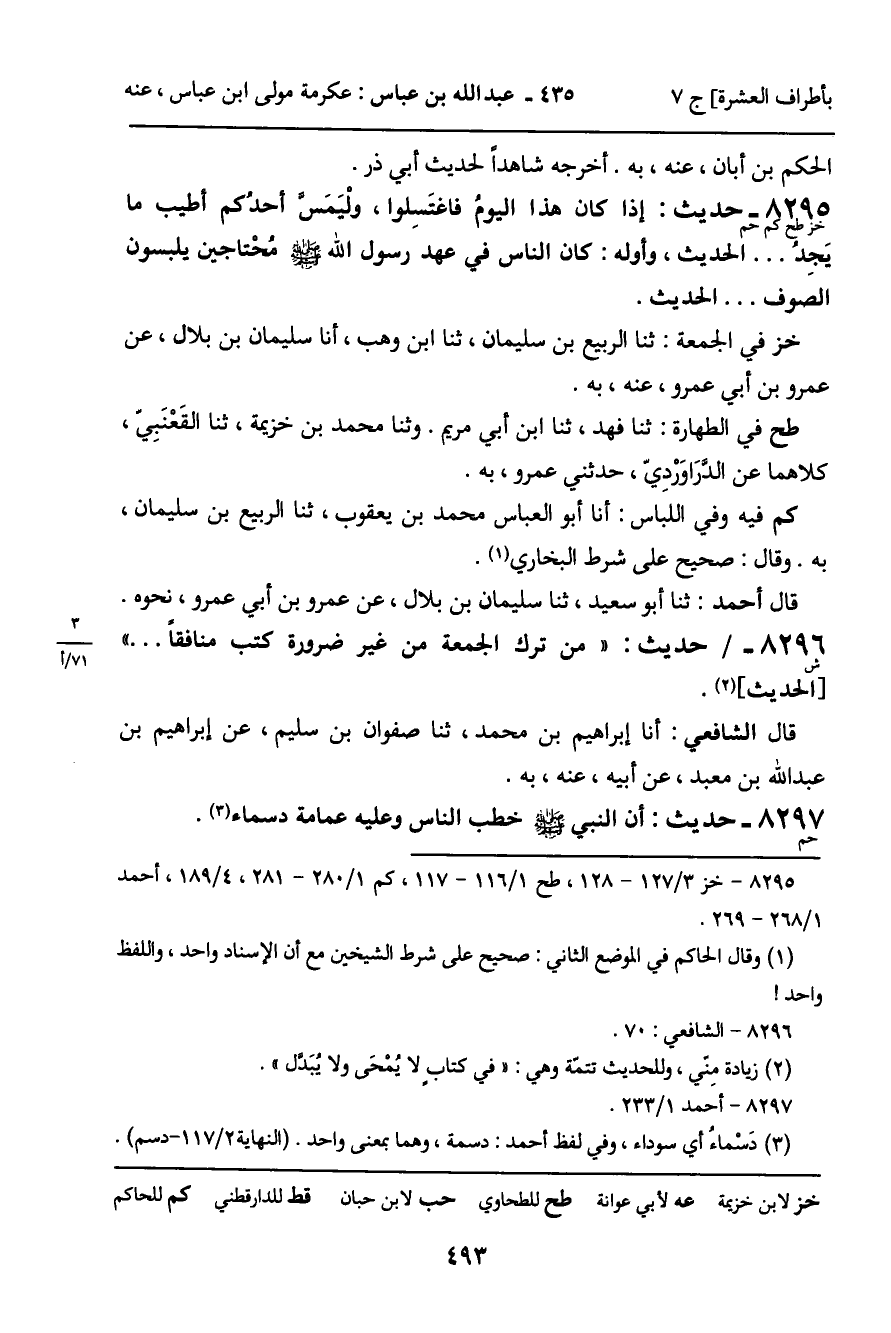 بأطراف العشرة] ج ٧ ٤٣٥ ـ عبدالله بن عباس : عكرمة مولى ابن عباس ، عنه
الحكم بن أبان ، عنه ، به . أخرجه شاهداً لحديث أبي ذر .
٨٢٩٥ ـ حديث : إذا كان هذا اليومُ فاغتَسِلوا ، ولْيَمَسَّ أحدُكم أطيب ما
خز طح كم حم
يَجِدُ ... الحديث ، وأوله : كان الناس في عهد رسول الله ﷺ مُحْتاجين يلبسون
الصوف ... الحديث .
خز في الجمعة : ثنا الربيع بن سليمان ، ثنا ابن وهب ، أنا سليمان بن بلال ، عن
عمرو بن أبي عمرو ، عنه ، به .
طح في الطهارة : ثنا فهد ، ثنا ابن أبي مريم . وثنا محمد بن خزيمة ، ثنا القَعْنَبِيّ ،
كلاهما عن الدَّرَاوَرْدِيّ ، حدثني عمرو ، به .
كم فيه وفي اللباس : أنا أبو العباس محمد بن يعقوب ، ثنا الربيع بن سليمان ،
به . وقال : صحيح على شرط البخاري(١) .
قال أحمد : ثنا أبو سعيد ، ثنا سليمان بن بلال ، عن عمرو بن أبي عمرو ، نحوه .
٣
٧١/أ
٨٢٩٦ ـ / حديث : « من ترك الجمعة من غير ضرورة كتب منافقاً ...»
ش
[الحديث](٢) .
قال الشافعي : أنا إبراهيم بن محمد ، ثنا صفوان بن سليم ، عن إبراهيم بن
عبدالله بن معبد ، عن أبيه ، عنه ، به .
٨٢٩٧ ـ حديث : أن النبي ﷺ خطب الناس وعليه عمامة دسماء(٣) .
حم
٨٢٩٥ – خز ١٢٧/٣ – ١٢٨ ، طح ١١٦/١ – ١١٧ ، كم ٢٨٠/١ – ٢٨١ ، ١٨٩/٤ ، أحمد
٢٦٨/١ – ٢٦٩ .
(١) وقال الحاكم في الموضع الثاني : صحيح على شرط الشيخين مع أن الإسناد واحد ، واللفظ
واحد !
٨٢٩٦ – الشافعي : ٧٠ .
(٢) زيادة مِنّي ، وللحديث تتمّة وهي : « في كتابٍ لا يُمْحَى ولا يُبَدَّل » .
٨٢٩٧ – أحمد ٢٣٣/١ .
(٣) دَسْماءُ أي سوداء ، وفي لفظ أحمد : دسمة ، وهما بمعنى واحد . (النهاية٢/١١٧–دسم) .
خز لابن خزيمة عه لأبي عوانة طح للطحاوي حب لابن حبان قط للدارقطني كم للحاكم
٤٩٣